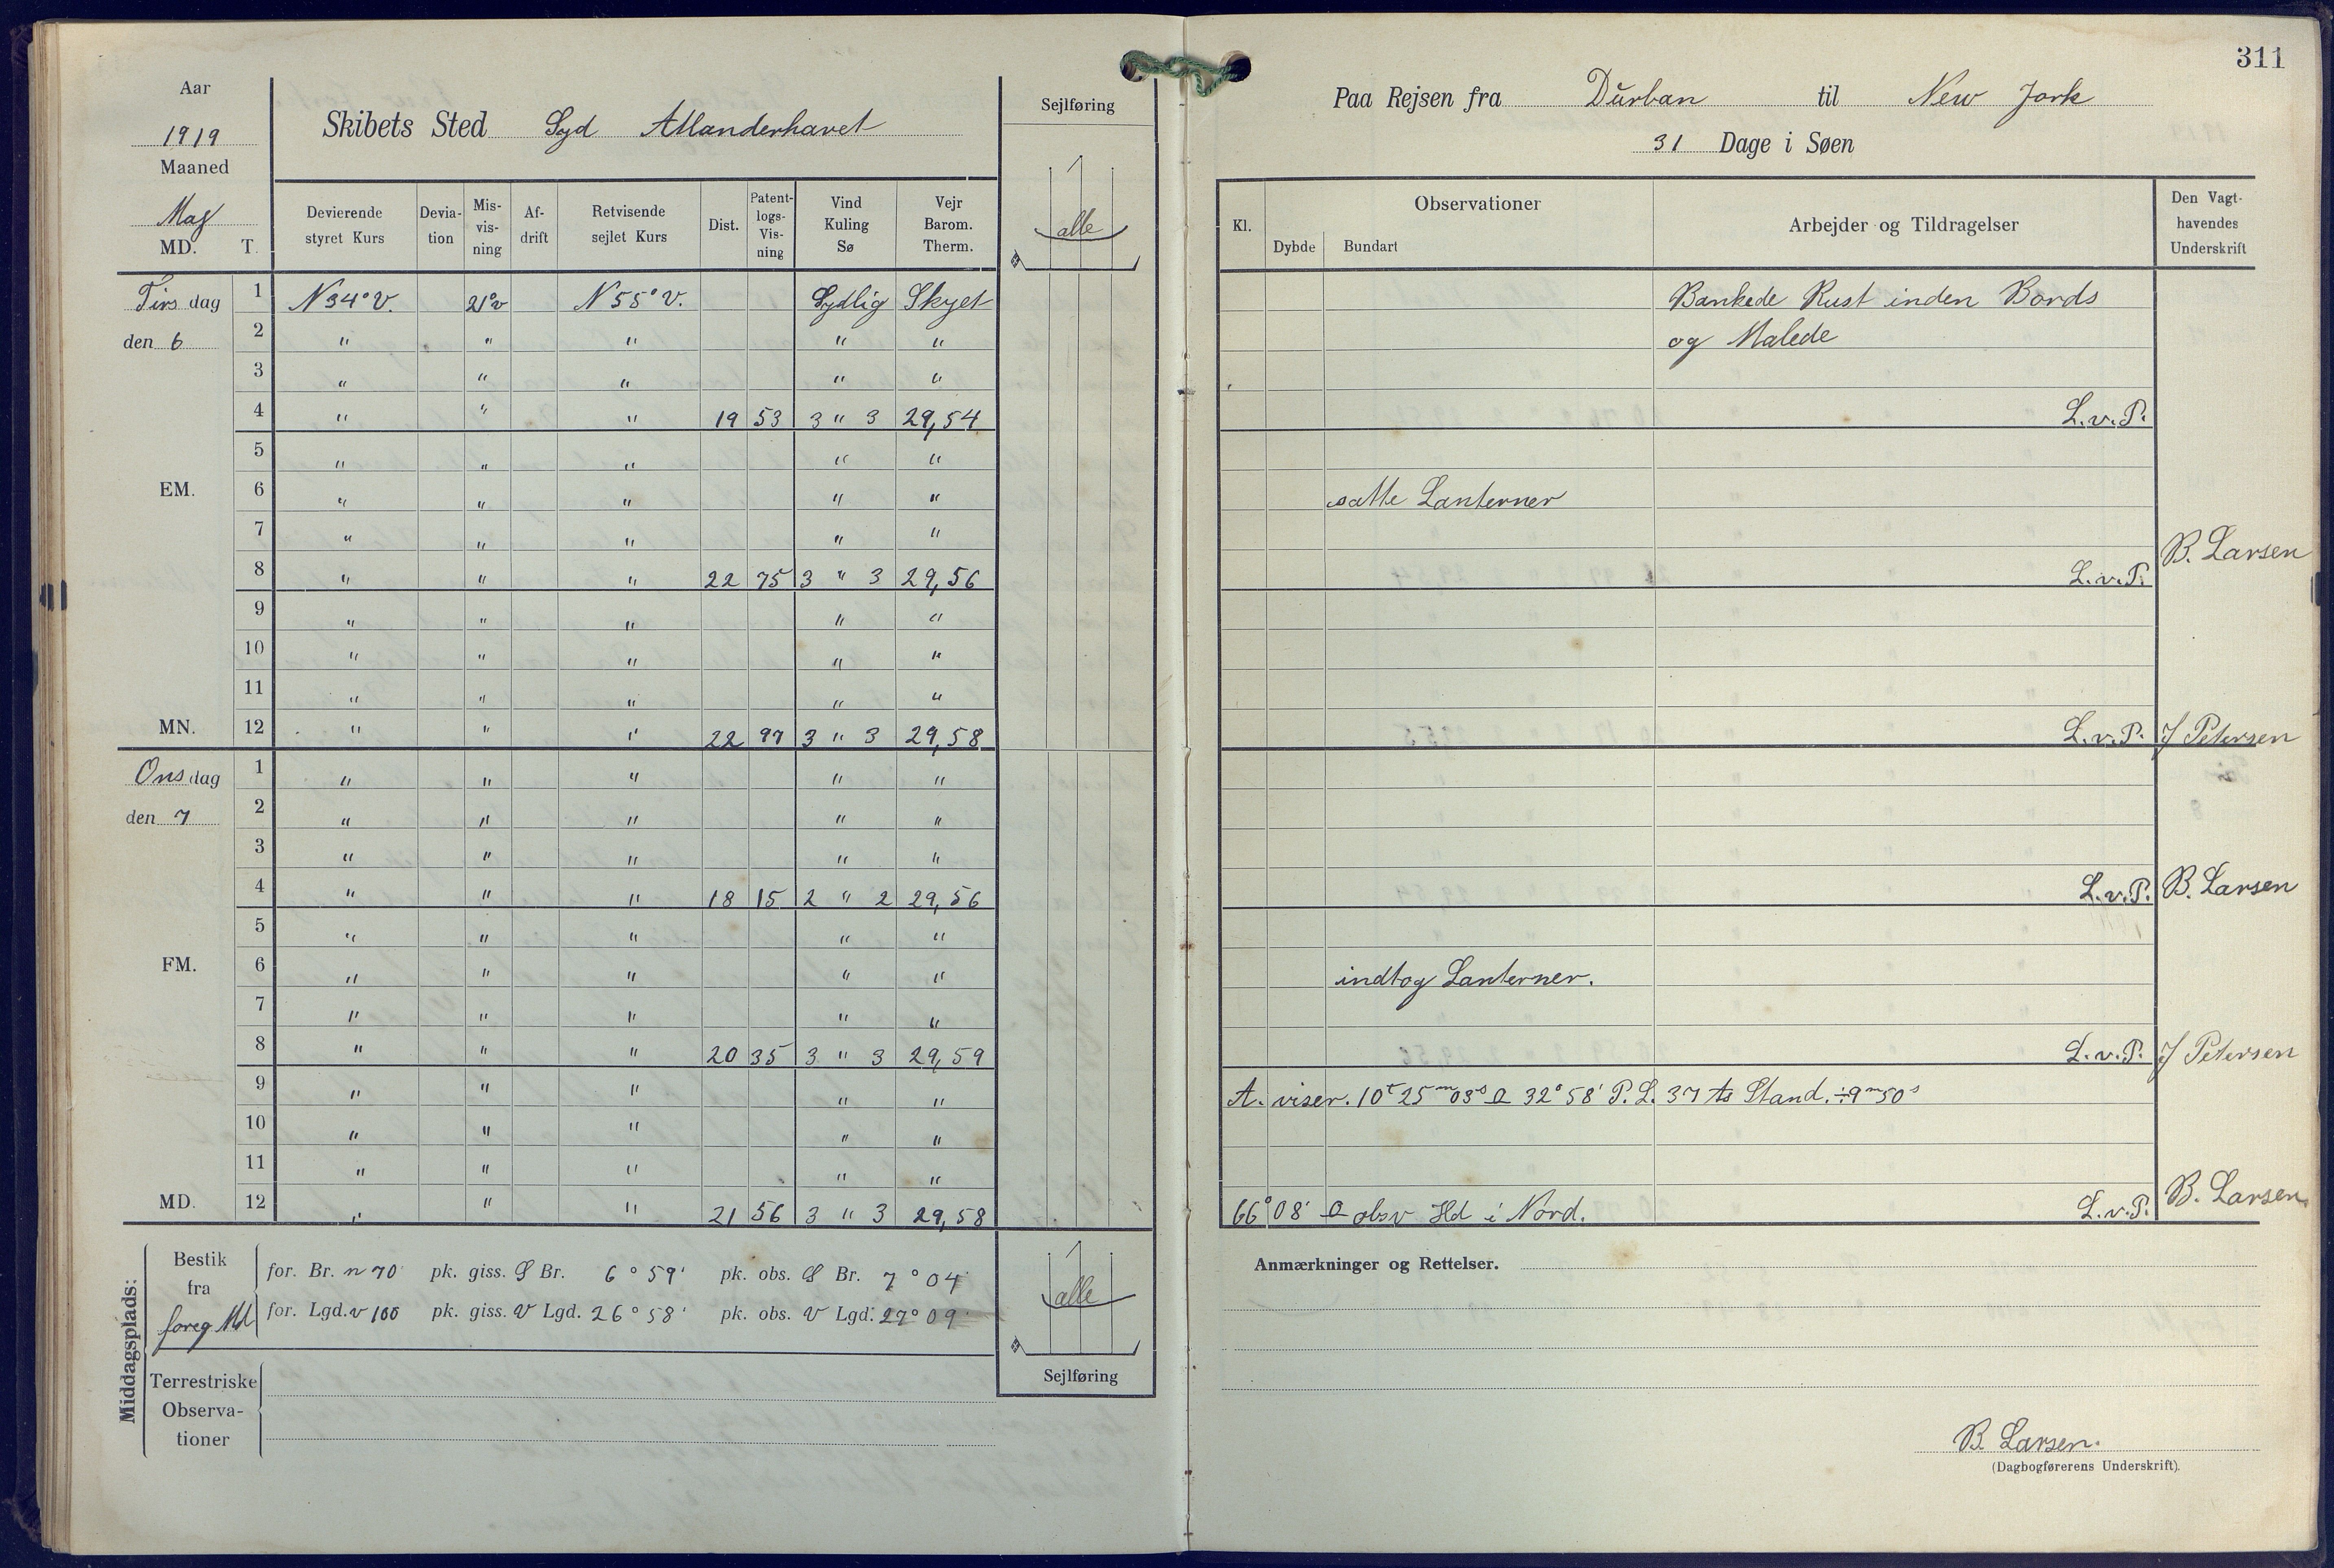 Aar
1919
Maaned
Maj
MD. T.
Skibets Sted Syd Atlanderhavet
Sejlføring
alle
Devierende styret Kurs
Devia-tion
Mis-vis-ning
Af-drift
Retvisende sejlet Kurs
Dist.
Patent-logs-Vis-ning
Vind Kuling Sø
Vejr Barom. Therm.
Tirsdag 1 N34°V. 21°v N55°V. Sydlig Skyet
den 6 2 " " " " "
3 " " " " "
4 " " " 19 53 3 " 3 29,54
5 " " " " "
EM. 6 " " " " "
7 " " " " "
8 " " " 22 75 3 " 3 29,56
9 " " " " "
10 " " " " "
11 " " " " "
MN. 12 " " " 22 97 3 " 3 29,58
Onsdag 1 " " " " "
den 7 2 " " " " "
3 " " " " "
4 " " " 18 15 2 " 2 29,56
5 " " " " "
FM. 6 " " " " "
7 " " " " "
8 " " " 20 35 3 " 3 29,59
9 " " " " "
10 " " " " "
11 " " " " "
MD. 12 " " " 21 56 3 " 3 29,58
Middagsplads:
Bestik
fra
foreg Md
for. Br. n 70 pk. giss. S Br. 6° 59' pk. obs. S Br. 7° 04'
for. Lgd. v 100 pk. giss. V Lgd. 26° 58' pk. obs. V Lgd. 27° 09'
Terrestriske
Observa-
tioner
alle
Sejlføring
311
Paa Rejsen fra Durban til New Jork
31 Dage i Søen
Kl.
Observationer
Dybde Bundart
Arbejder og Tildragelser
Den Vagt-
havendes
Underskrift
Bankede Rust inden Bords
og Malede
L.v.P.
satte Lanterner
B. Larsen
L.v.P.
L.v.P. J Petersen
L.v.P. B. Larsen
indtog Lanterner.
L.v.P. J Petersen
A. viser. 10t 25m 03s 32°58' P.L. 37 Stand. ÷9m50s
66°08' obsv Hd i Nord. L.v.P. B. Larsen
Anmærkninger og Rettelser.
B. Larsen.
(Dagbogførerens Underskrift).